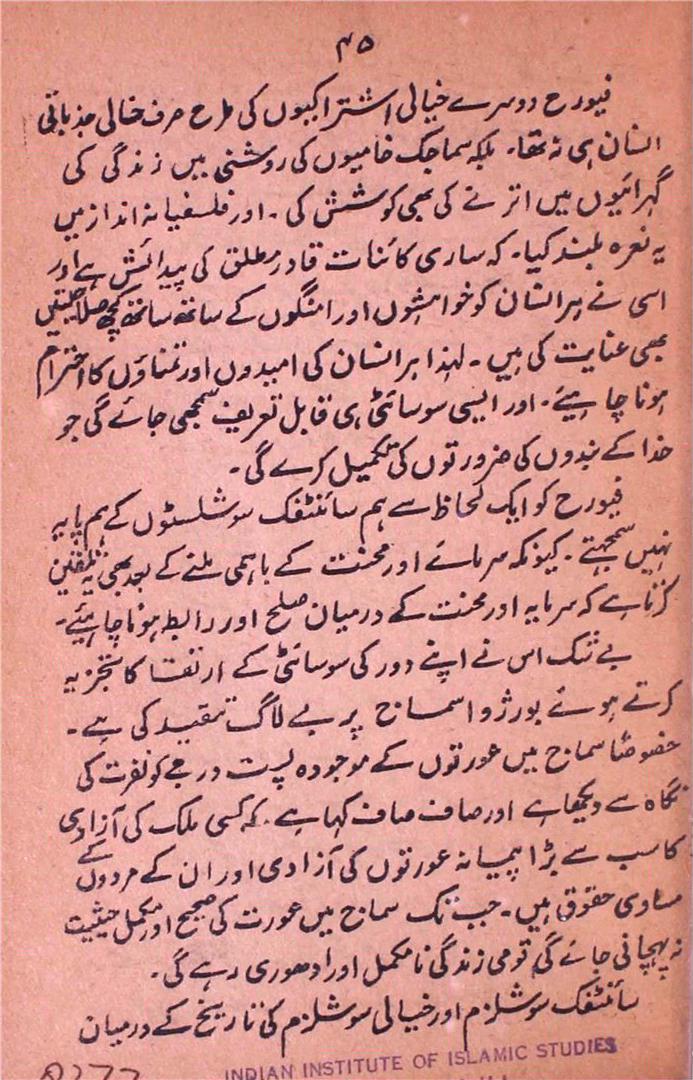 ۴۵
فیورح دوسرے خیالی اشتراکیوں کی طرح صرف خالی جذباتی
انسان ہی نہ تھا۔ بلکہ سماجک خامیوں کی روشنی میں زندگی کی
گہرائیوں میں اترنے کی بھی کوشش کی۔ اور فلسفیانہ انداز میں
یہ نعرہ بلند کیا۔ کہ ساری کائنات قادر مطلق کی پیدائش ہے اور
اسی نے ہر انسان کو خواہشوں اور امنگوں کے ساتھ ساتھ کچھ صلاحیتیں
بھی عنایت کی ہیں۔ لہذا ہر انسان کی امیدوں اور تمناؤں کا احترام
ہونا چاہیئے۔ اور ایسی سوسائٹی ہی قابل تعریف سمجھی جائے گی جو
خدا کے بندوں کی ضرورتوں کی تکمیل کرے گی۔
فیورح کو ایک لحاظ سے ہم سائنٹفک سوشلسٹوں کے ہم پایہ
نہیں سمجھتے۔ کیونکہ سرمائے اور محنت کے باہمی ملنے کے بعد بھی یہ تلقین
کرتا ہے کہ سرمایہ اور محنت کے درمیان صلح اور رابطہ ہونا چاہیئے۔
بے شک اس نے اپنے دور کی سوسائٹی کے ارتقا کا تجزیہ
کرتے ہوئے بورژوا سماج پر بے لاگ تنقید کی ہے۔
خصوصاً سماج میں عورتوں کے موجودہ پست درجے کو نفرت کی
نگاہ سے دیکھا ہے اور صاف صاف کہا ہے۔ کہ کسی ملک کی آزادی
کا سب سے بڑا پیمانہ عورتوں کی آزادی اور ان کے مردوں کے
مساوی حقوق ہیں۔ جب تک سماج میں عورت کی صحیح اور مکمل حیثیت
نہ پہچانی جائے گی قومی زندگی نامکمل اور ادھوری رہے گی۔
سائنٹفک سوشلزم اور خیالی سوشلزم کی تاریخ کے درمیان
INDIAN INSTITUTE OF ISLAMIC STUDIES